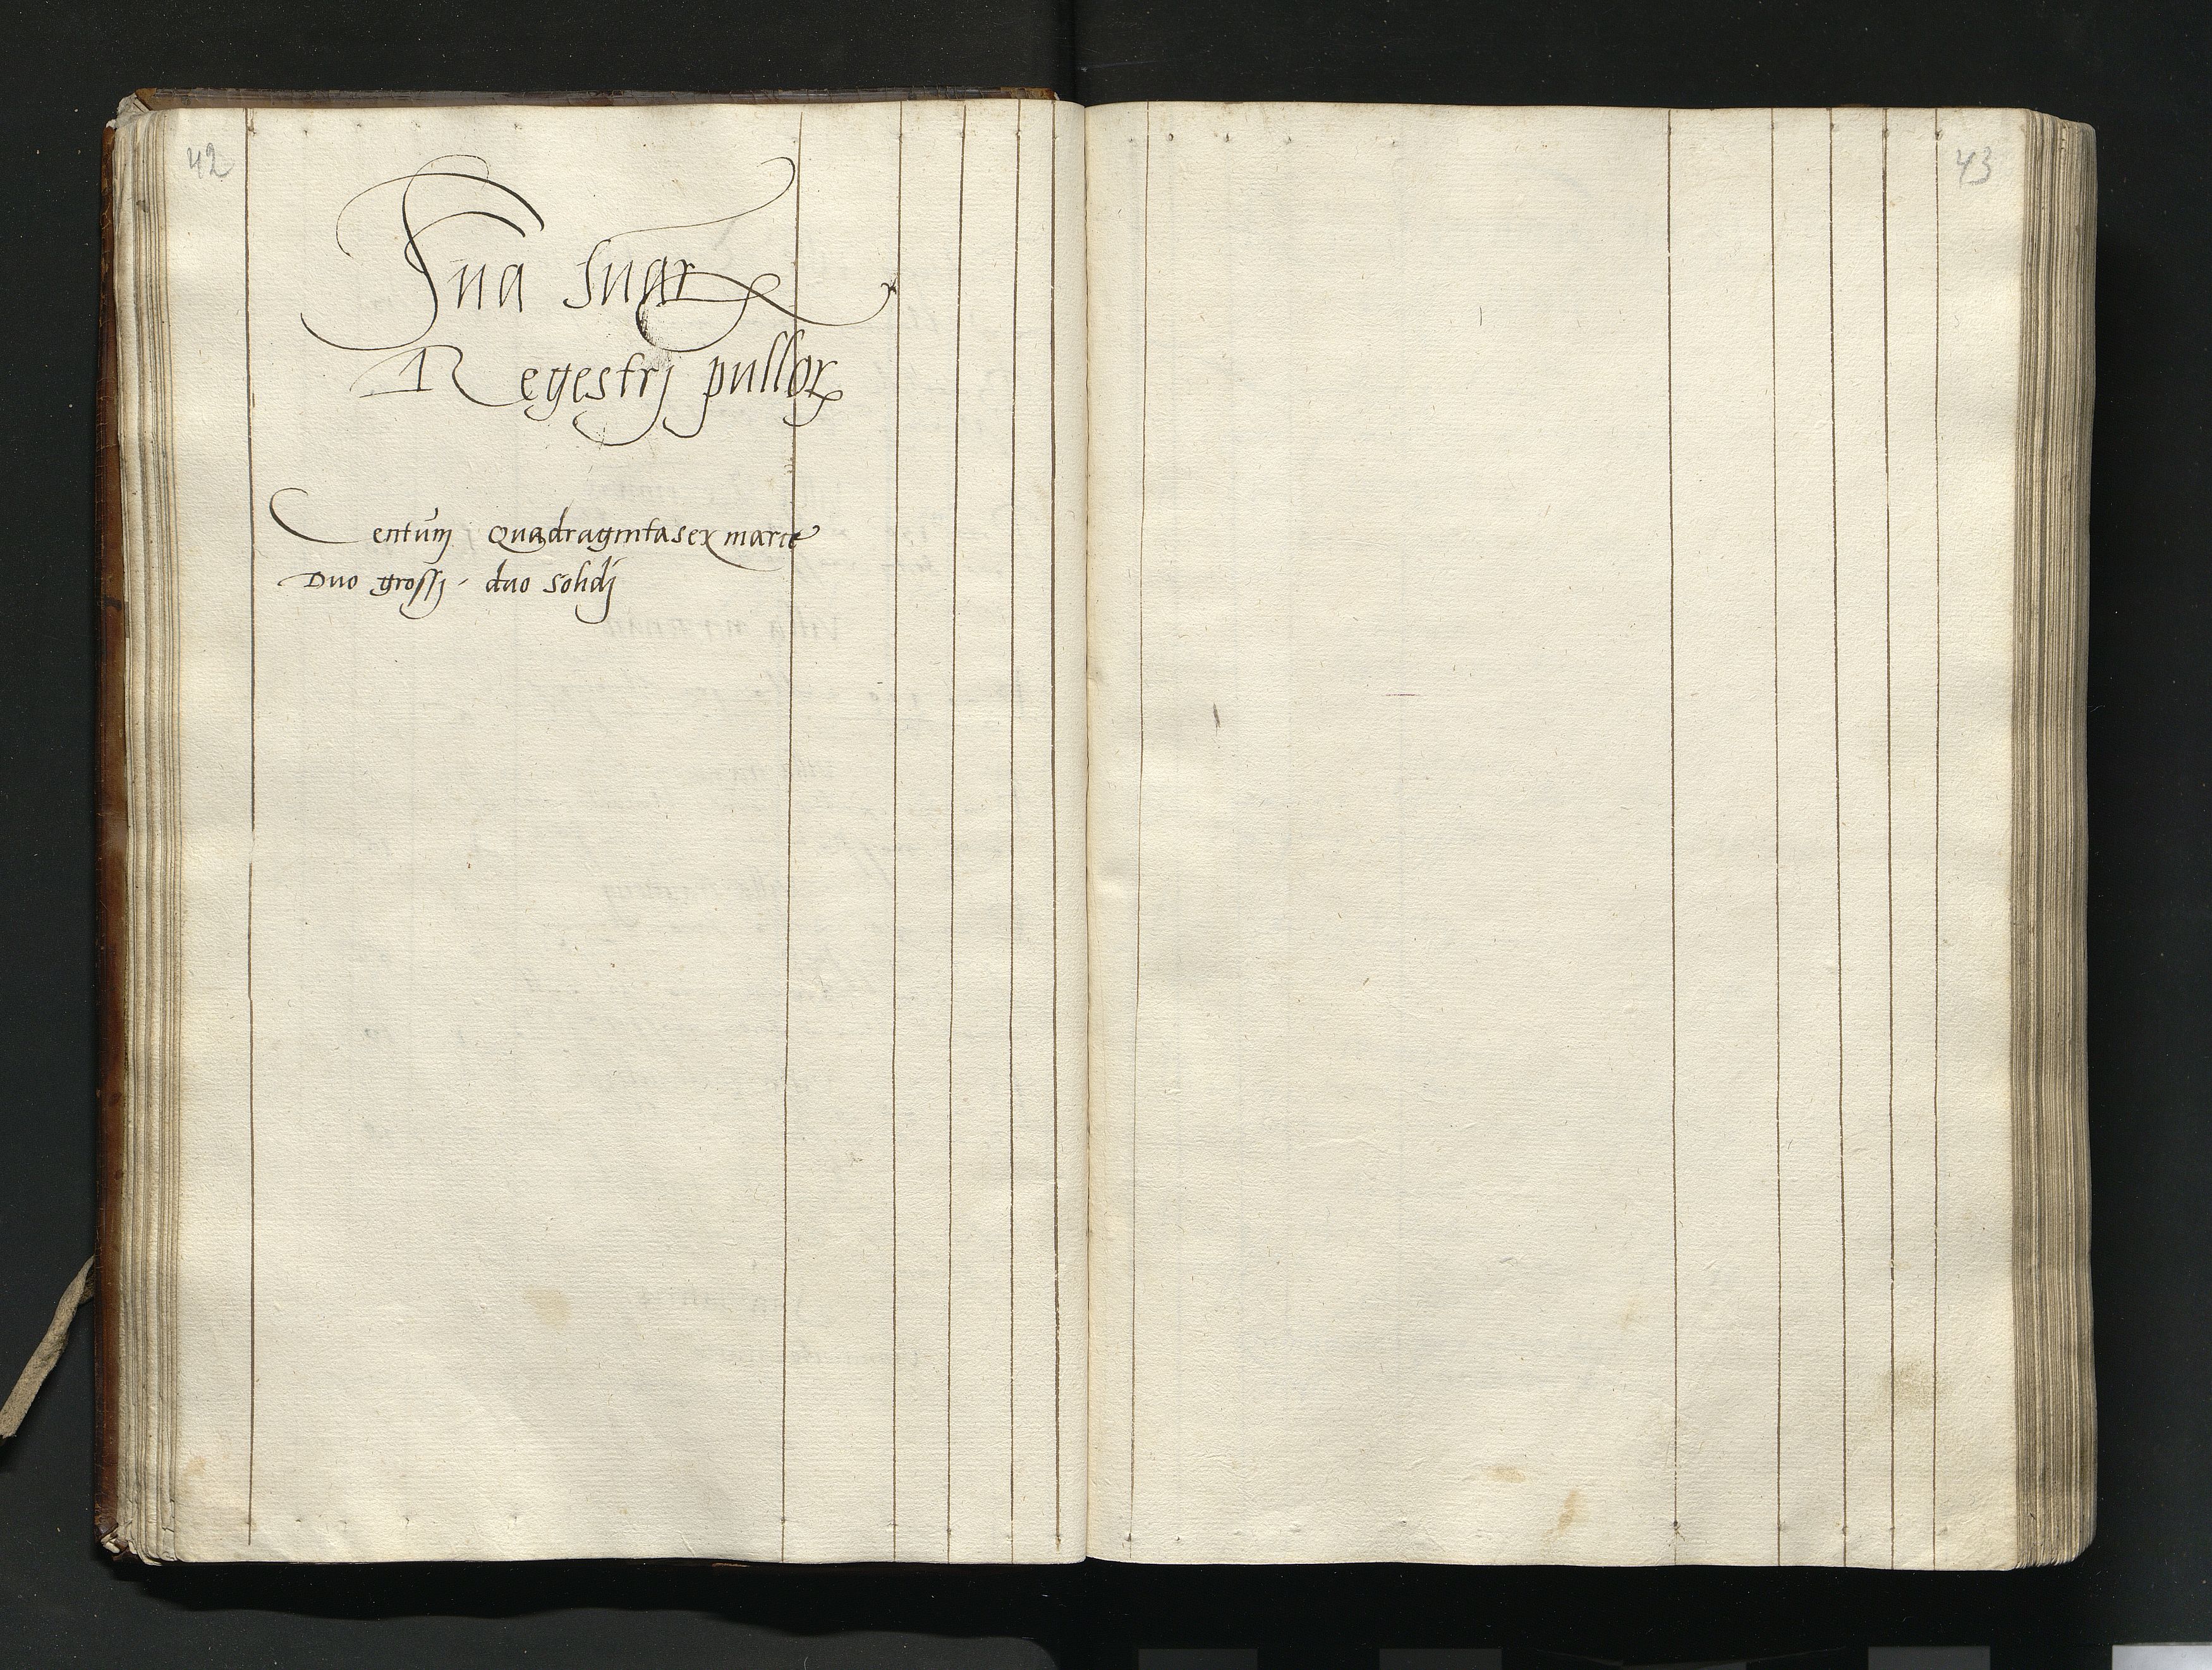 42
Sua suar
Regestrj pullor
Centum Quadragintasex marce
Duo grossj - duo solidj
43